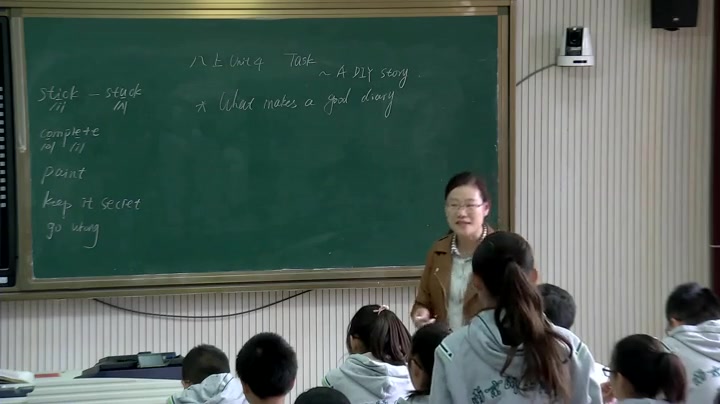 八上 Unit 4 Task
~ A DIY story
* What makes a good diary
stick - stuck
/ɪ/ /ʌ/
complete
/ə/ /iː/
paint
keep it secret
go wrong